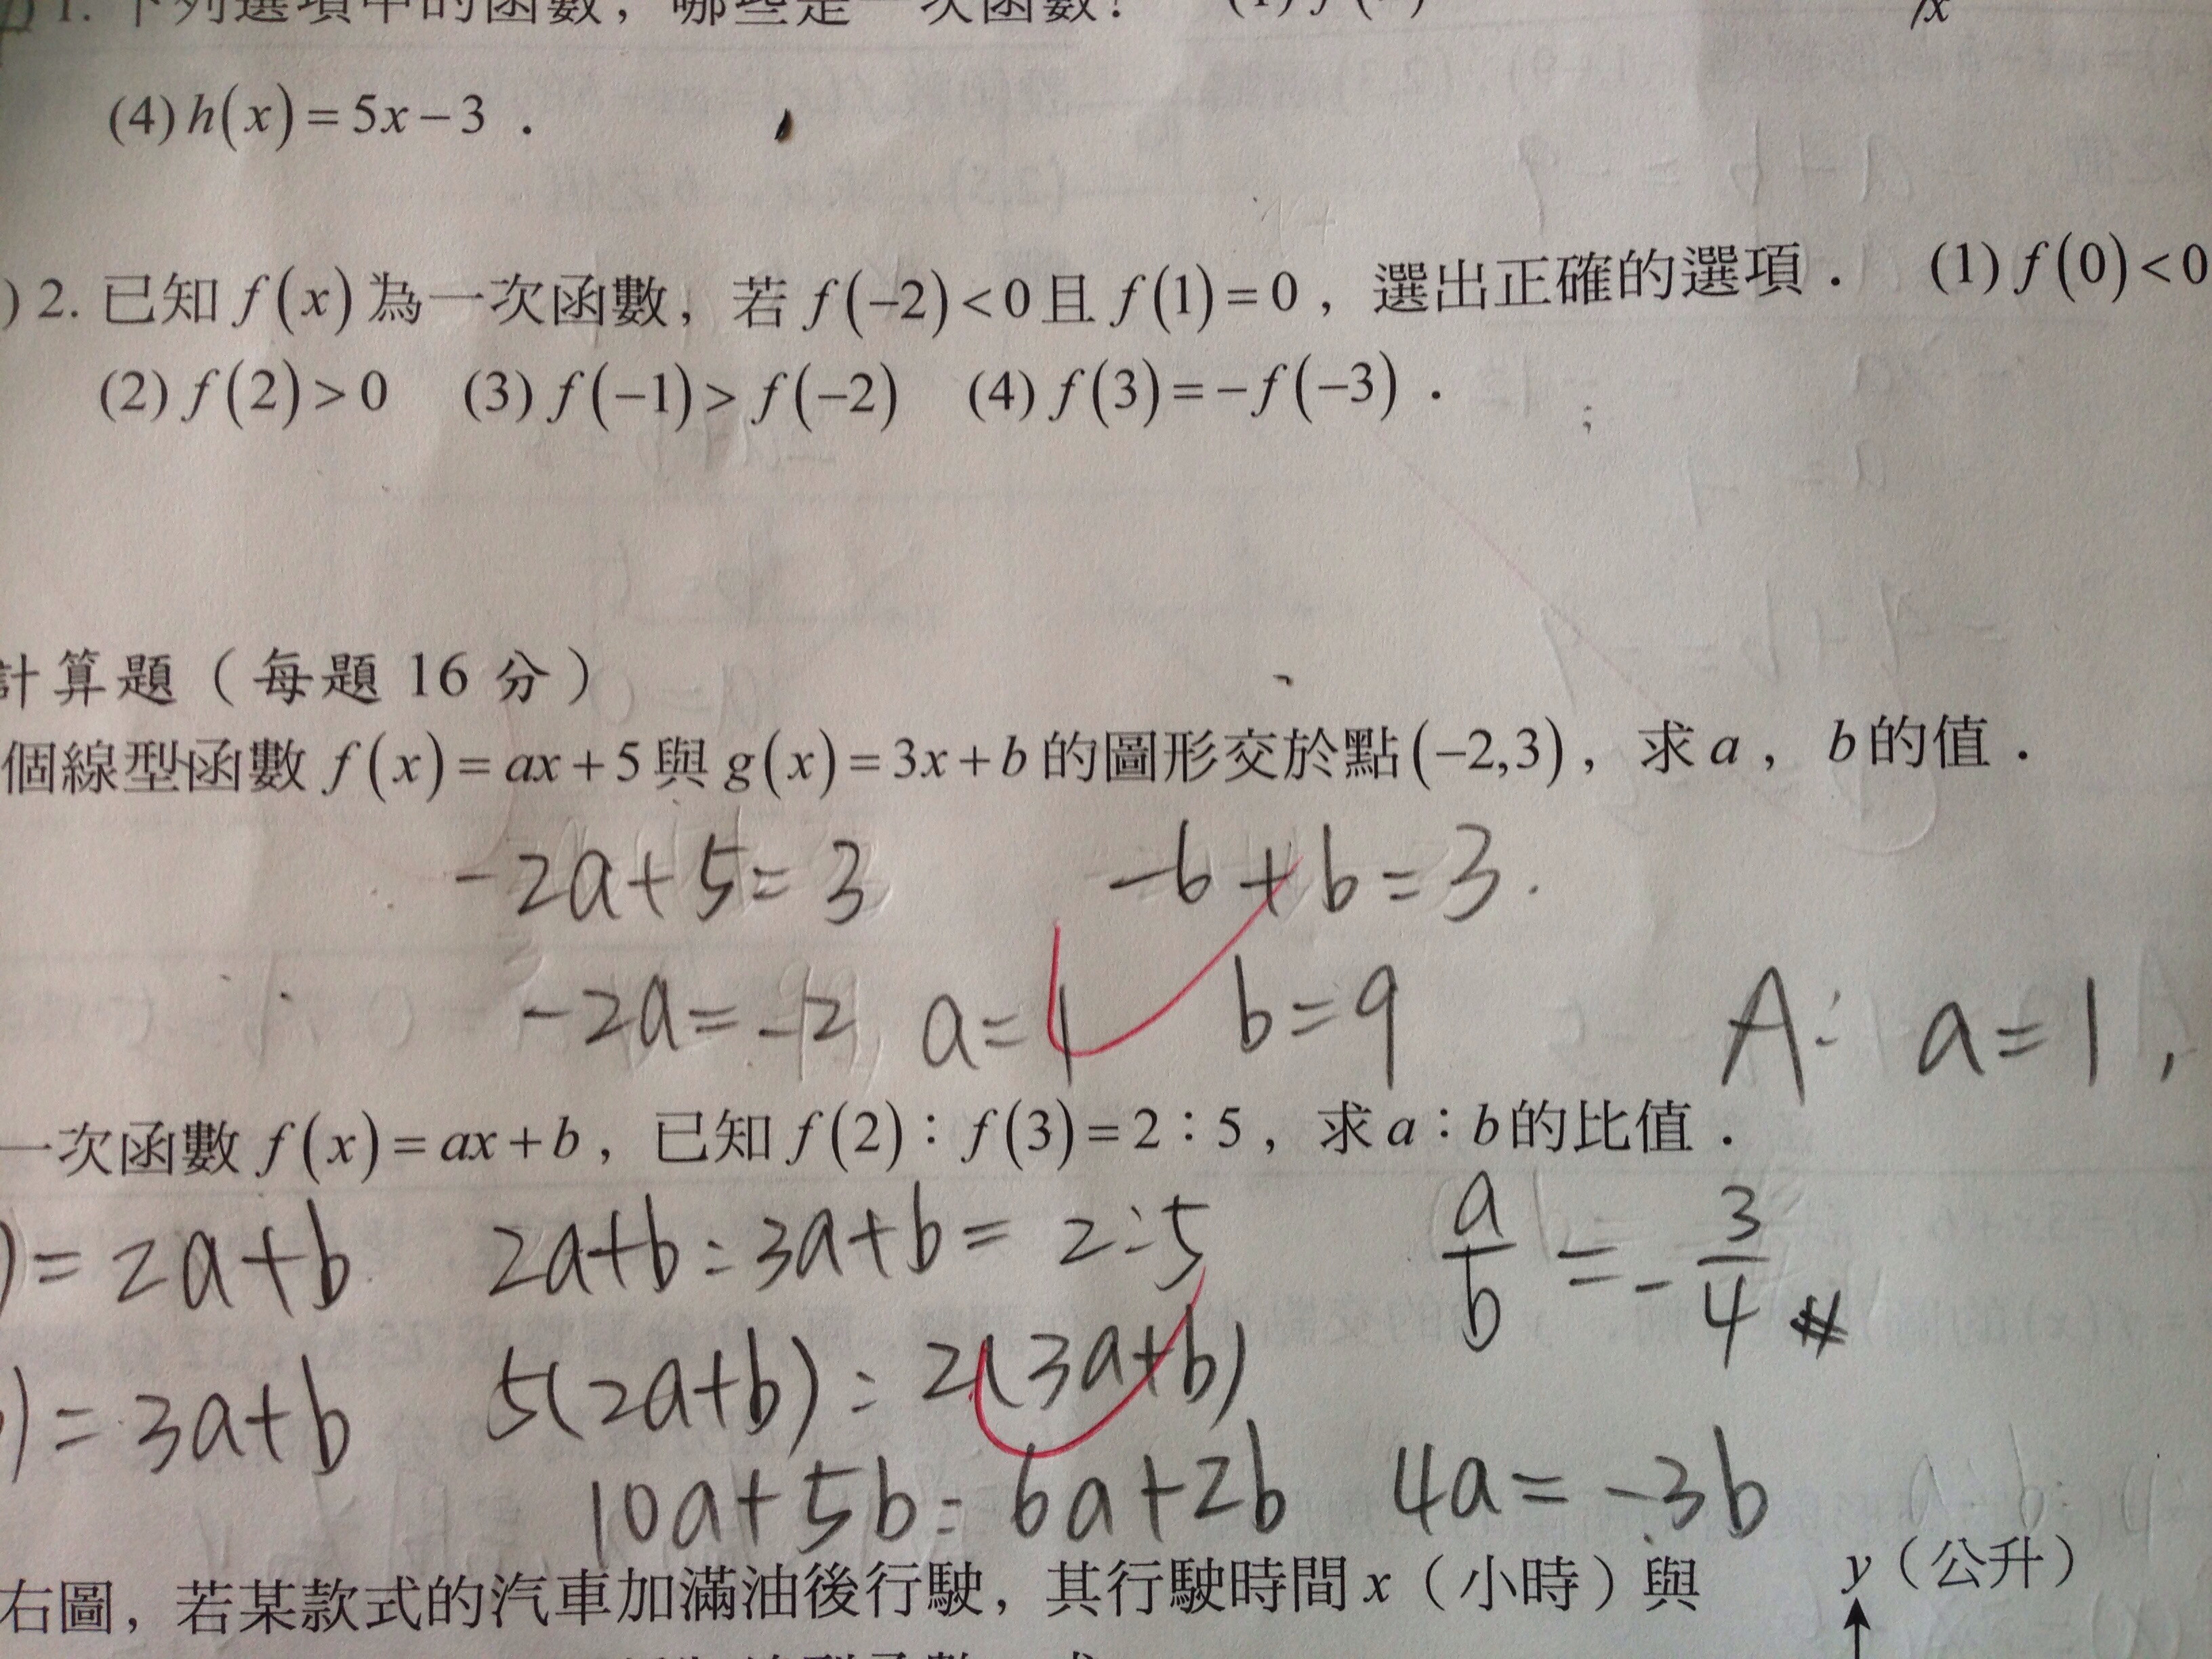 1. 下列選項中的函數，哪些是一次函數？ (1) f(
(4) h(x) = 5x − 3 ．
) 2. 已知 f(x) 為一次函數，若 f(−2) < 0 且 f(1) = 0 ，選出正確的選項． (1) f(0) < 0
(2) f(2) > 0 (3) f(−1) > f(−2) (4) f(3) = −f(−3) ．
計算題（每題 16 分）
個線型函數 f(x) = ax + 5 與 g(x) = 3x + b 的圖形交於點 (−2,3)，求 a ， b 的值．
-2a+5=3 -6+b=3.
-2a=-2 a=1 b=9 A: a=1,
一次函數 f(x) = ax + b ，已知 f(2)：f(3) = 2：5 ，求 a：b 的比值．
)=2a+b 2a+b:3a+b=2:5 a/b=-3/4 #
)=3a+b 5(2a+b)=2(3a+b)
10a+5b=6a+2b 4a=-3b
右圖，若某款式的汽車加滿油後行駛，其行駛時間 x（小時）與 y（公升）